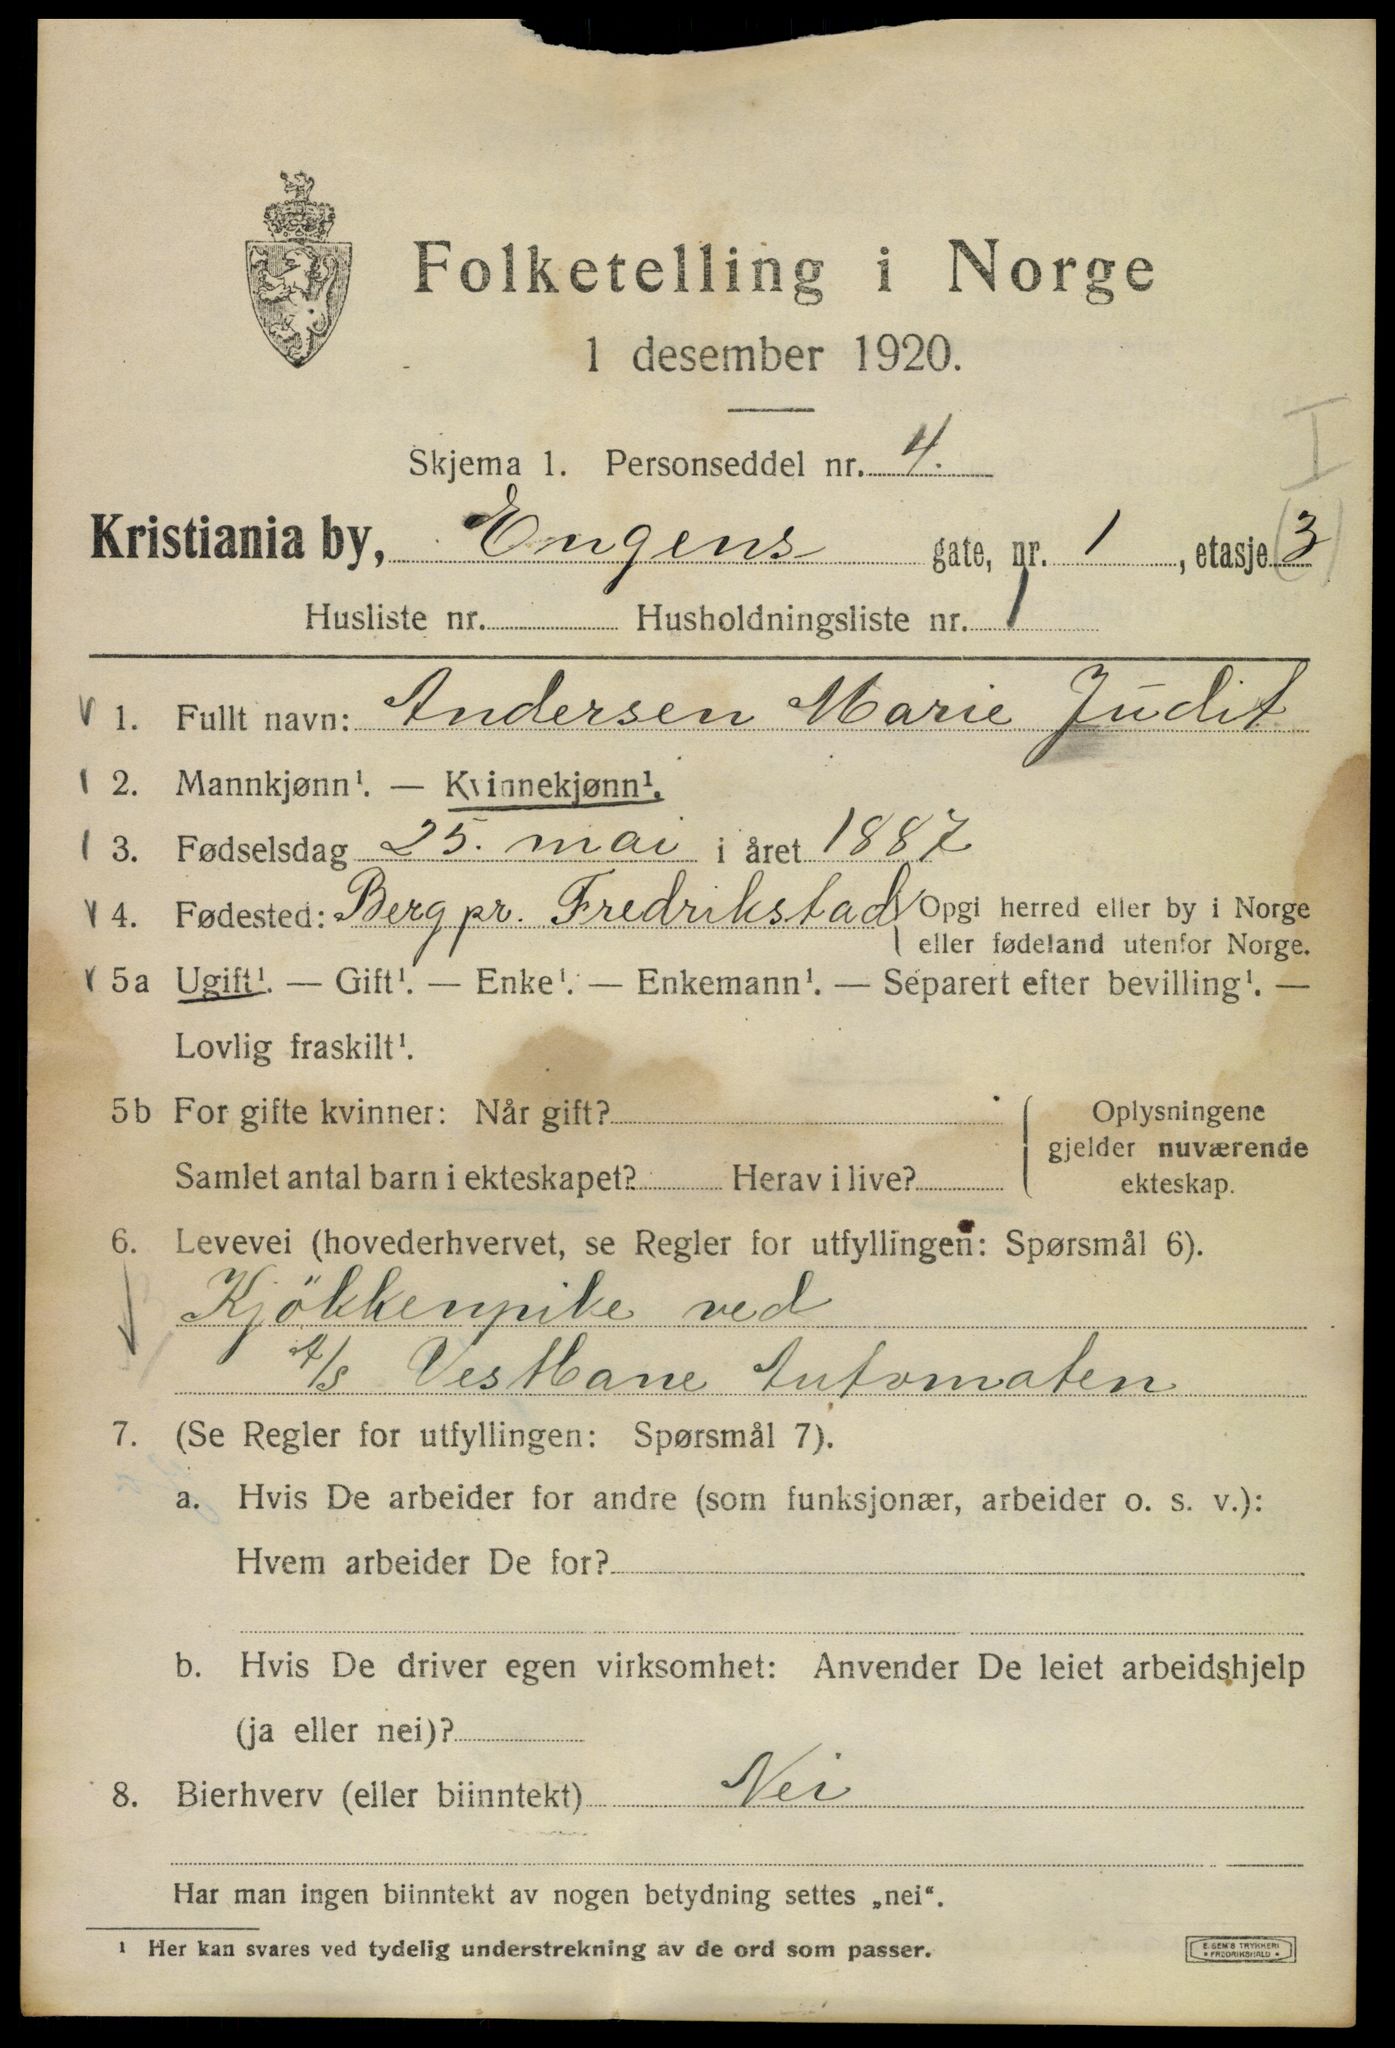 Folketelling i Norge
1 desember 1920.
Skjema 1. Personseddel nr. 4.
Kristiania by, Engens gate, nr. 1, etasje (3)
I
Husliste nr. Husholdningsliste nr. 1
1. Fullt navn: Andersen Marie Judit
2. Mannkjønn¹. — Kvinnekjønn¹.
3. Fødselsdag 25. mai i året 1887
4. Fødested: Berg pr. Fredrikstad Opgi herred eller by i Norge
eller fødeland utenfor Norge.
5a Ugift¹. — Gift¹. — Enke¹. — Enkemann¹. — Separert efter bevilling¹. —
Lovlig fraskilt¹.
5b For gifte kvinner: Når gift?
Samlet antal barn i ekteskapet? Herav i live?
Oplysningene
gjelder nuværende
ekteskap.
6. Levevei (hovederhvervet, se Regler for utfyllingen: Spørsmål 6).
Kjökkenpike ved
A/S Vestbane Automaten
7. (Se Regler for utfyllingen: Spørsmål 7).
a. Hvis De arbeider for andre (som funksjonær, arbeider o. s. v.):
Hvem arbeider De for?
b. Hvis De driver egen virksomhet: Anvender De leiet arbeidshjelp
(ja eller nei)?
8. Bierhverv (eller biinntekt) Nei
Har man ingen biinntekt av nogen betydning settes „nei“.
¹ Her kan svares ved tydelig understrekning av de ord som passer.
E. SEM'S TRYKKERI
• FREDRIKSHALD •